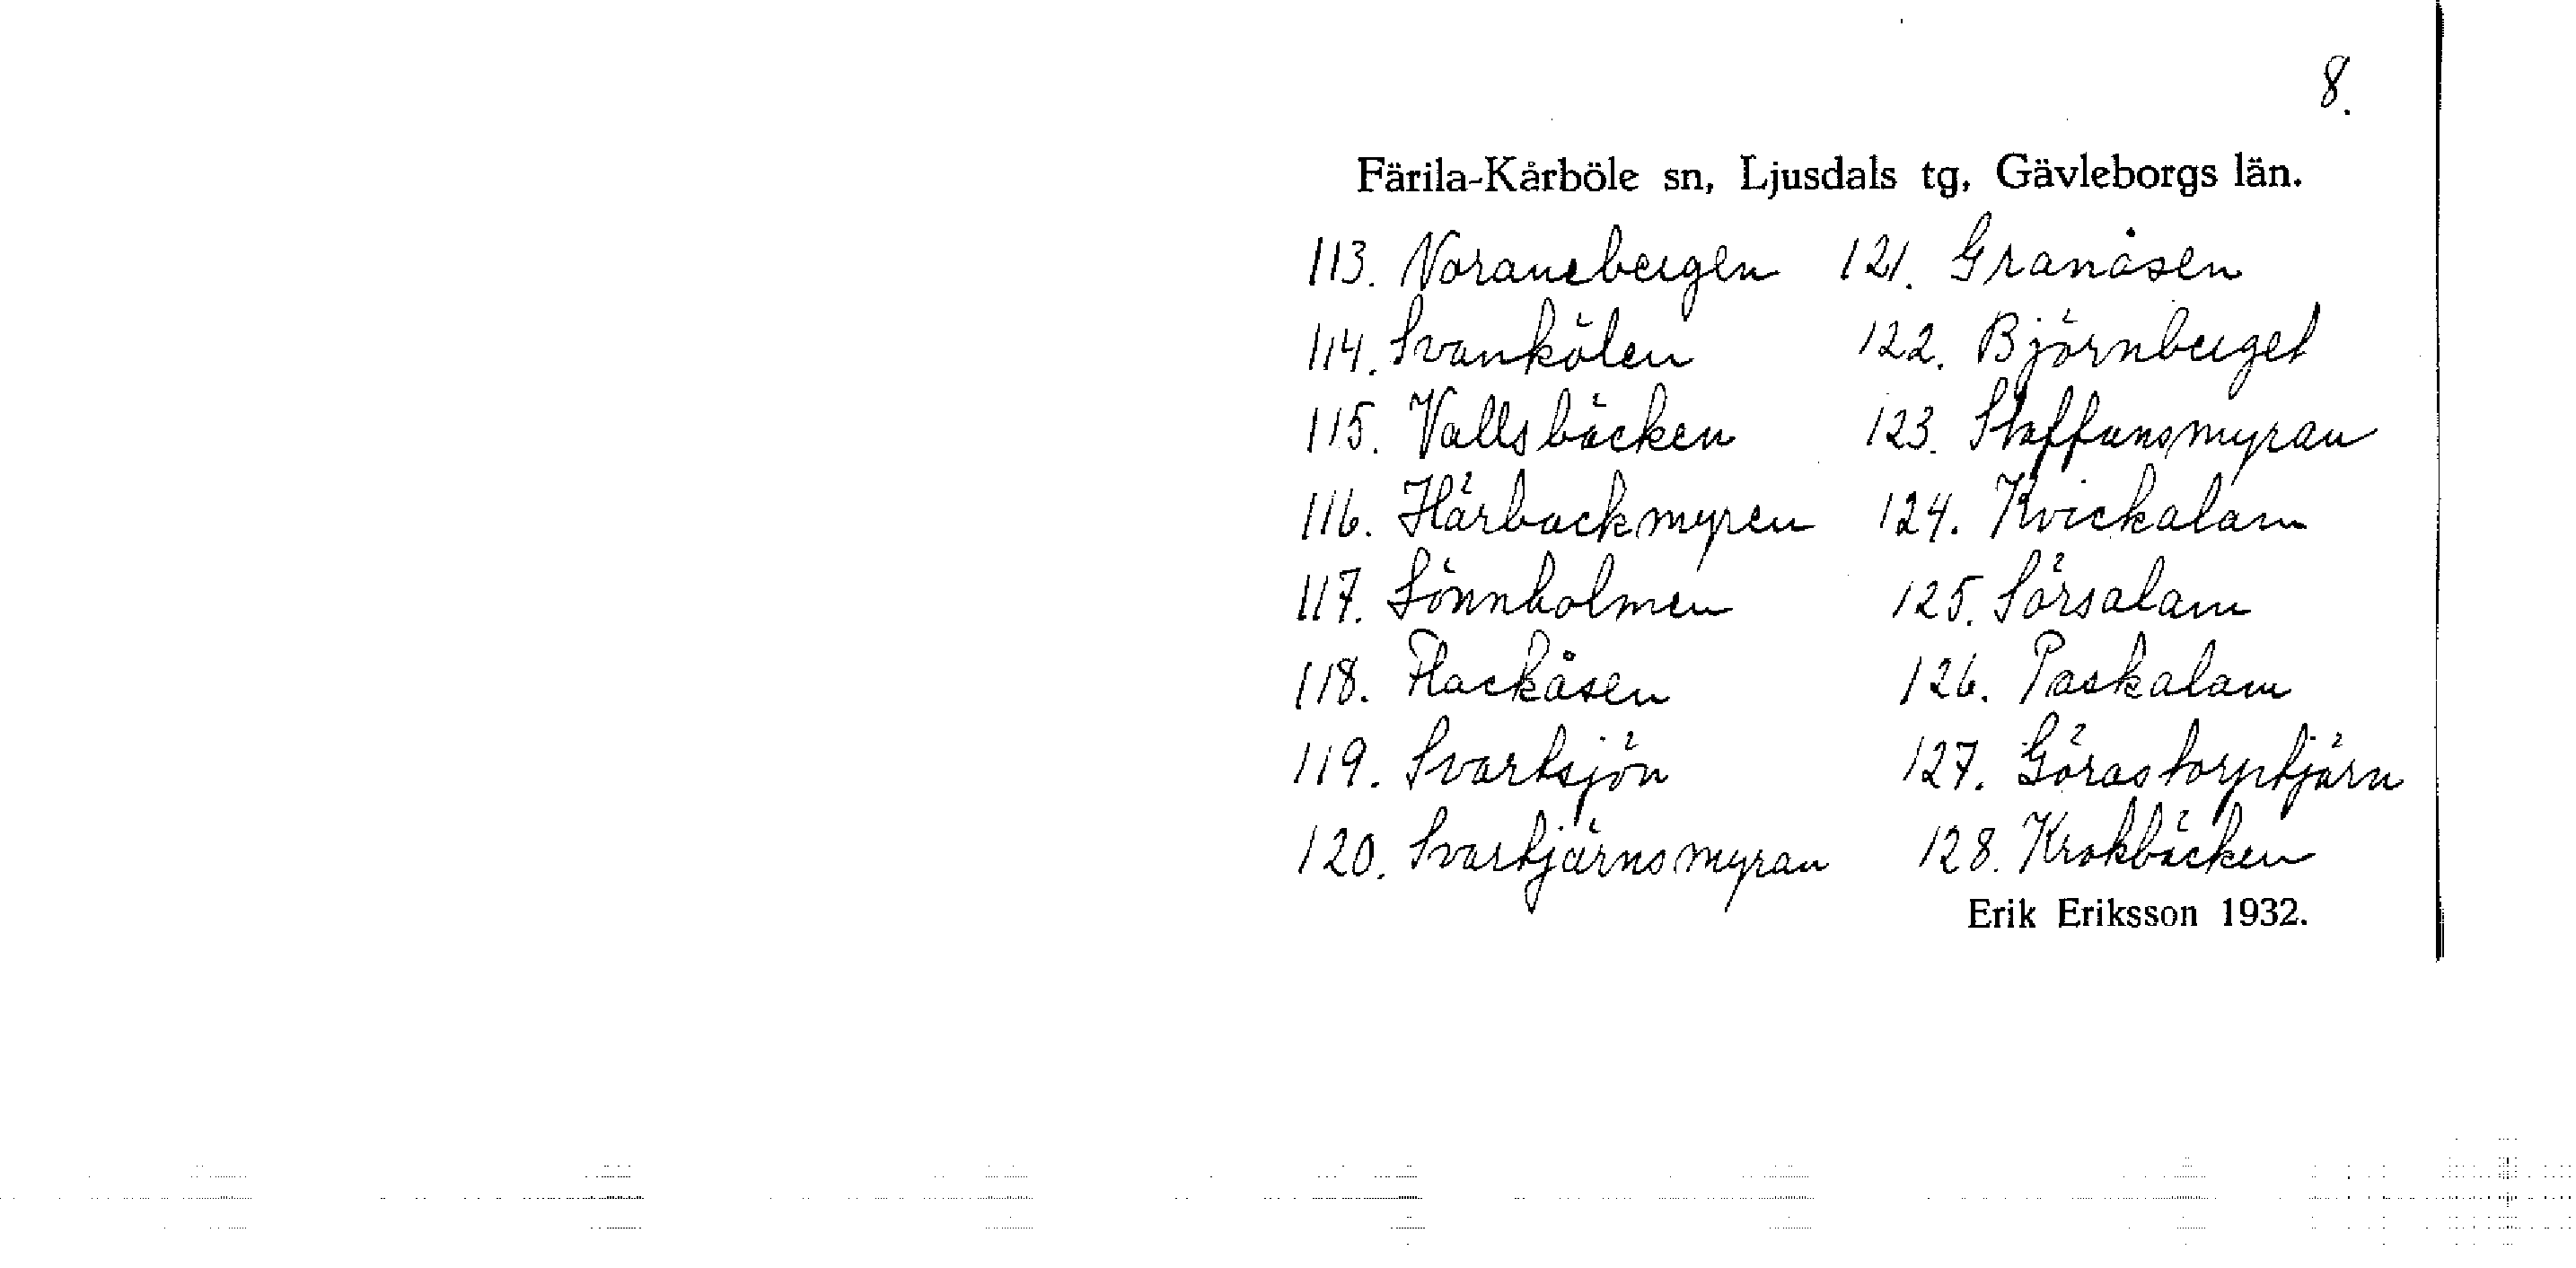 8.
Färila-Kårböle sn, Ljusdals tg, Gävleborgs län.
113. Noranebergen
114. Svankölen
115. Vallsbäcken
116. Härbackmyren
117. Sönnholmen
118. Flackåsen
119. Svartsjön
120. Svartjärnsmyran
121. Granåsen
122. Björnberget
123. Staffansmyran
124. Kvickalam
125. Sörsalam
126. Paskalam
127. Görastorptjärn
128. Krokbäcken
Erik Eriksson 1932.